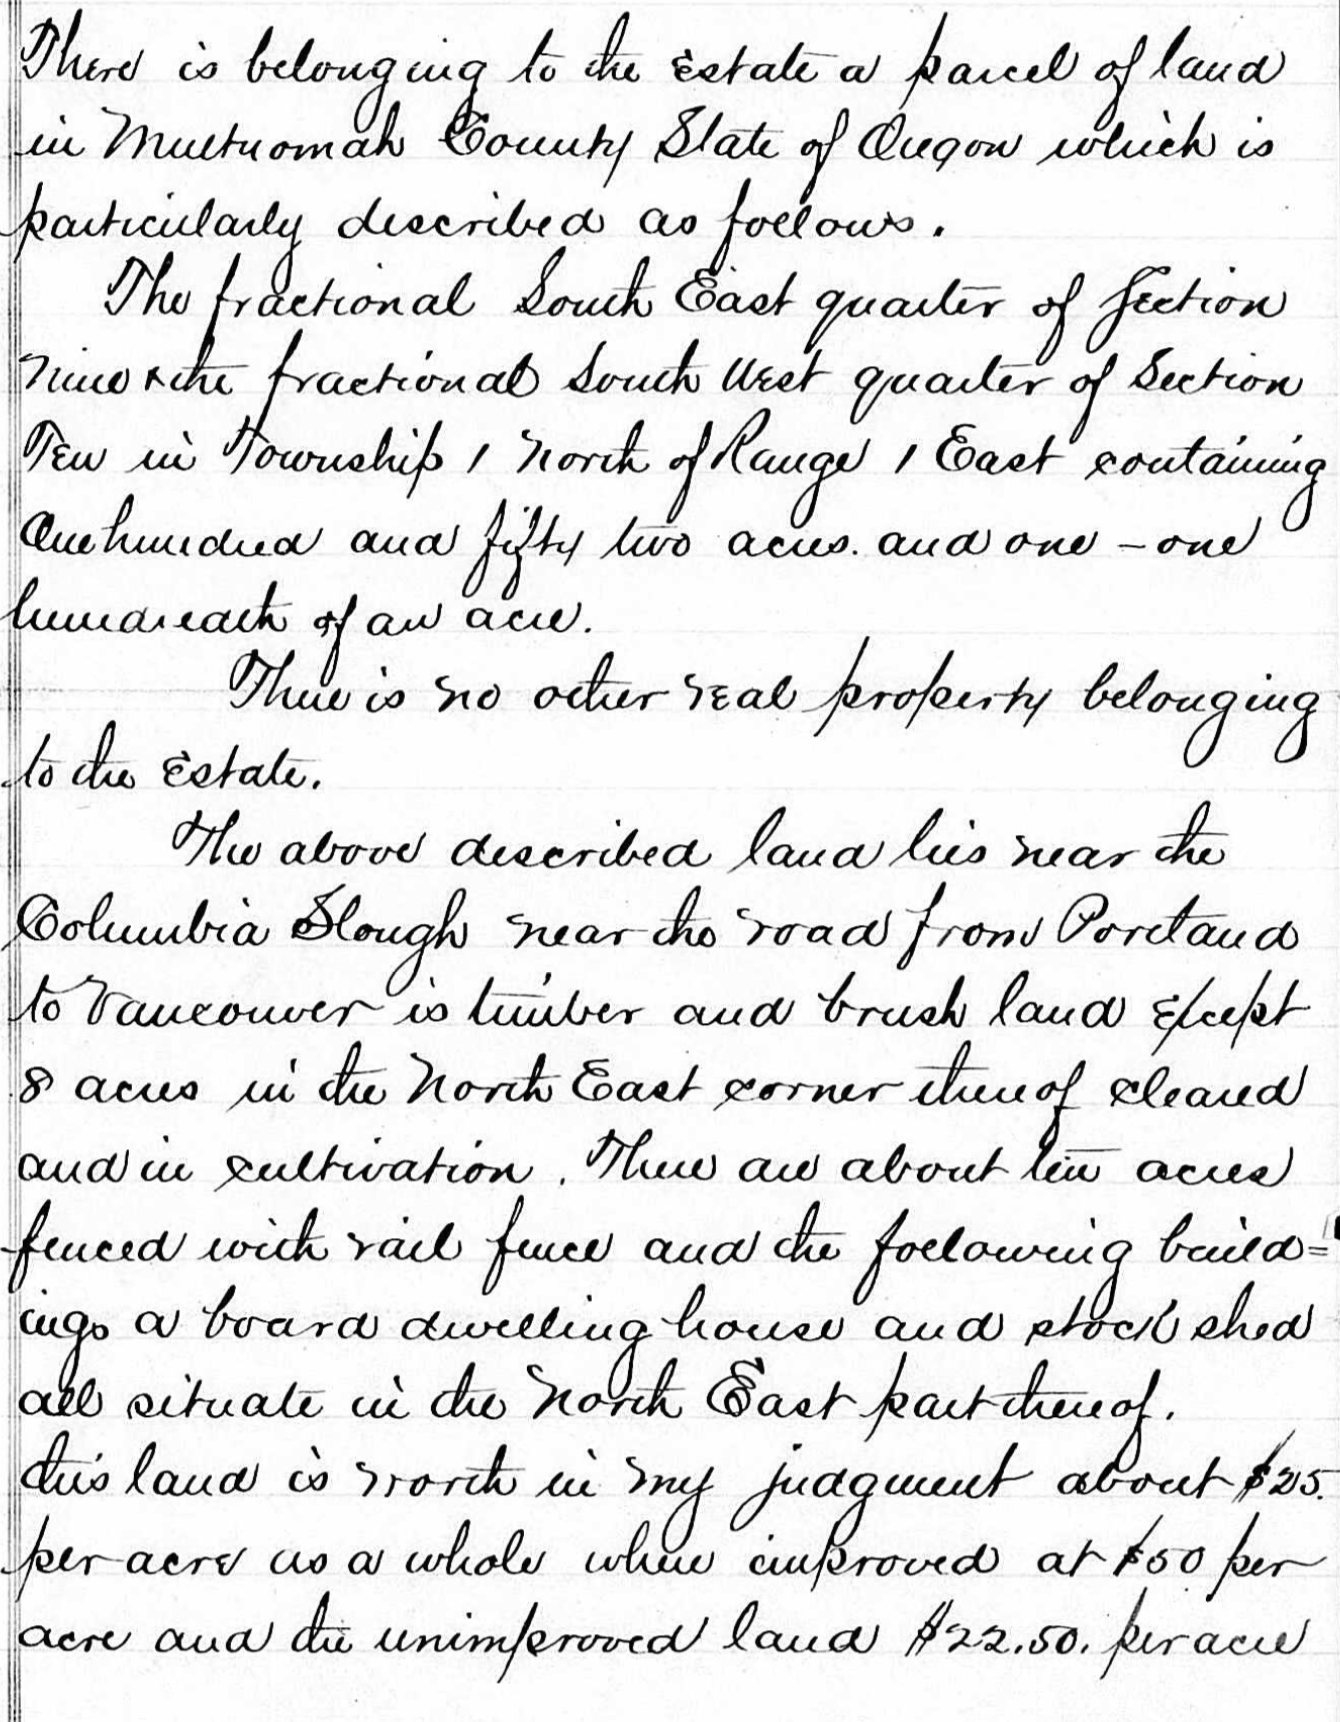 There is belonging to the Estate a parcel of land
in Multnomah County State of Oregon which is
particularly described as follows.
The fractional South East quarter of Section
nine & the fractional South West quarter of Section
Ten in Township 1 North of Range 1 East containing
One hundred and fifty two acres. and one - one
hundredth of an acre.
There is no other real property belonging
to the Estate.
The above described land lies near the
Columbia Slough near the road from Portland
to Vancouver is timber and brush land Except
8 acres in the North East corner thereof cleared
and in cultivation. There are about ten acres
fenced with rail fence and the following build=
ings a board dwelling house and stock shed
all situate in the North East part thereof.
this land is worth in my judgment about $25.
per acre as a whole when improved at $50 per
acre and the unimproved land $22.50. per acre